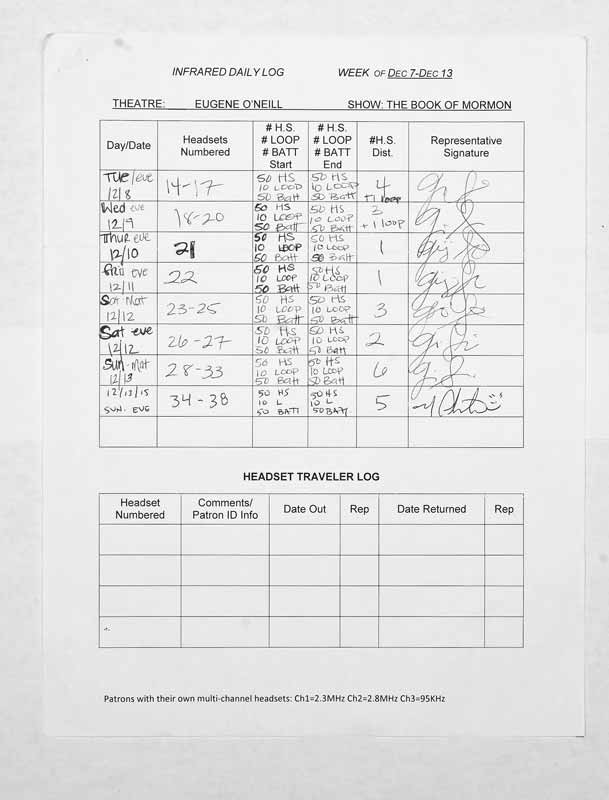 INFRARED DAILY LOG WEEK OF DEC 7-DEC 13
THEATRE: EUGENE O'NEILL SHOW: THE BOOK OF MORMON
Day/Date
Headsets
Numbered
# H.S.
# LOOP
# BATT
Start
# H.S.
# LOOP
# BATT
End
#H.S.
Dist.
Representative
Signature
Tue/eve
12/8
14-17
50 HS
10 LOOP
50 Batt
50 HS
10 LOOP
50 Batt
4
+1 loop
Wed eve
12/9
18-20
50 HS
10 LOOP
50 Batt
50 HS
10 LOOP
50 Batt
3
+1 loop
Thur eve
12/10
21
50 HS
10 LOOP
50 Batt
50 HS
10 LOOP
50 Batt
1
Fri eve
12/11
22
50 HS
10 LOOP
50 Batt
50 HS
10 LOOP
50 Batt
1
Sat Mat
12/12
23-25
50 HS
10 LOOP
50 Batt
50 HS
10 LOOP
50 Batt
3
Sat eve
12/12
26-27
50 HS
10 LOOP
50 Batt
50 HS
10 LOOP
50 Batt
2
Sun-Mat
12/13
28-33
50 HS
10 LOOP
50 Batt
50 HS
10 LOOP
50 Batt
6
12/13/15
SUN. EVG
34-38
50 HS
10 L
50 BATT
50 HS
10 L
50 BATT
5
HEADSET TRAVELER LOG
Headset
Numbered
Comments/
Patron ID Info
Date Out
Rep
Date Returned
Rep
Patrons with their own multi-channel headsets: Ch1=2.3MHz Ch2=2.8MHz Ch3=95KHz